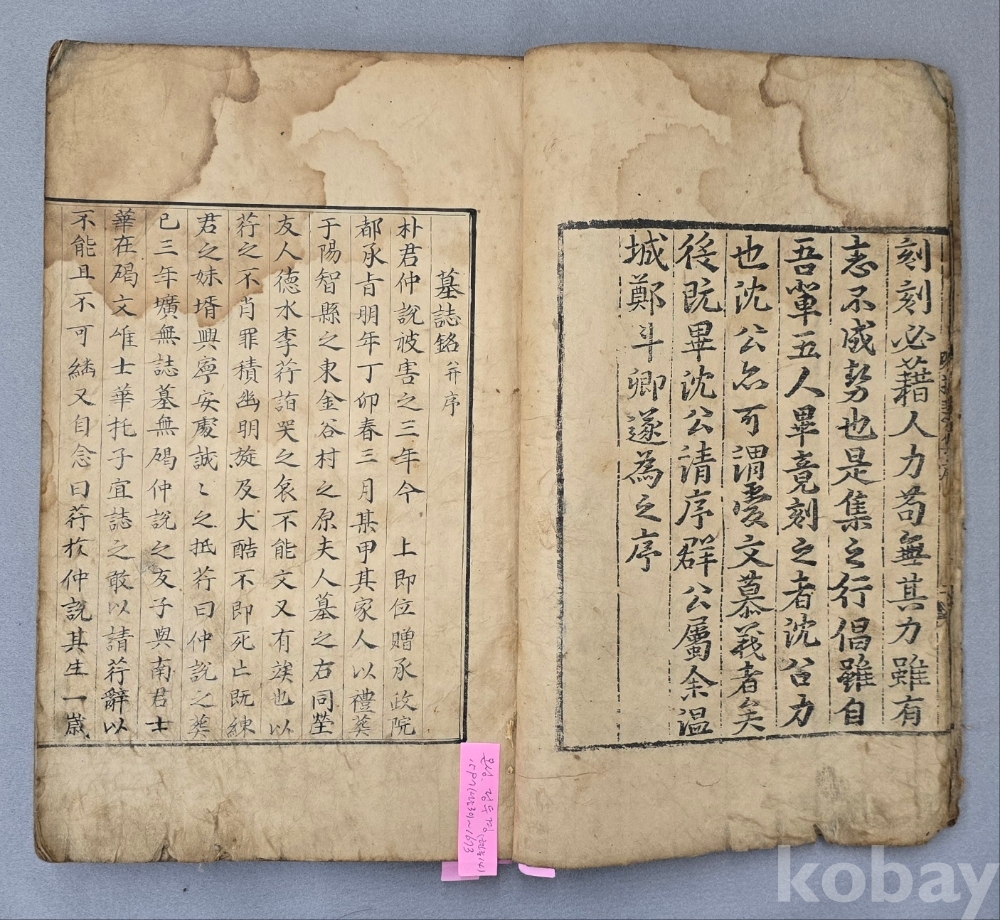 刻刻必藉人力苟無其力雖有
志不成勢也是集之行倡雖自
吾輩五人畢竟刻之者沈公力
也沈公亦可謂愛文慕義者矣
後旣畢沈公請序群公屬余溫
城鄭斗卿遂為之序
墓誌銘 并序
朴君仲說被害之三年今 上即位贈承政院
都承旨明年丁卯春三月某甲其家人以禮葬
于陽智縣之東金谷村之原夫人墓之右同塋
友人德水李荇詣哭之哀不能文又有竢也以
荇之不肖罪積幽明旋及大酷不即死亡旣練
君之妹壻興寧安處誠〻之抵荇曰仲說之葬
已三年壙無誌墓無碣仲說之友子與南君士
華在碣文惟士華托子宜誌之敢以請荇辭以
不能且不可繼又自念曰荇於仲說其生一歲
kobay